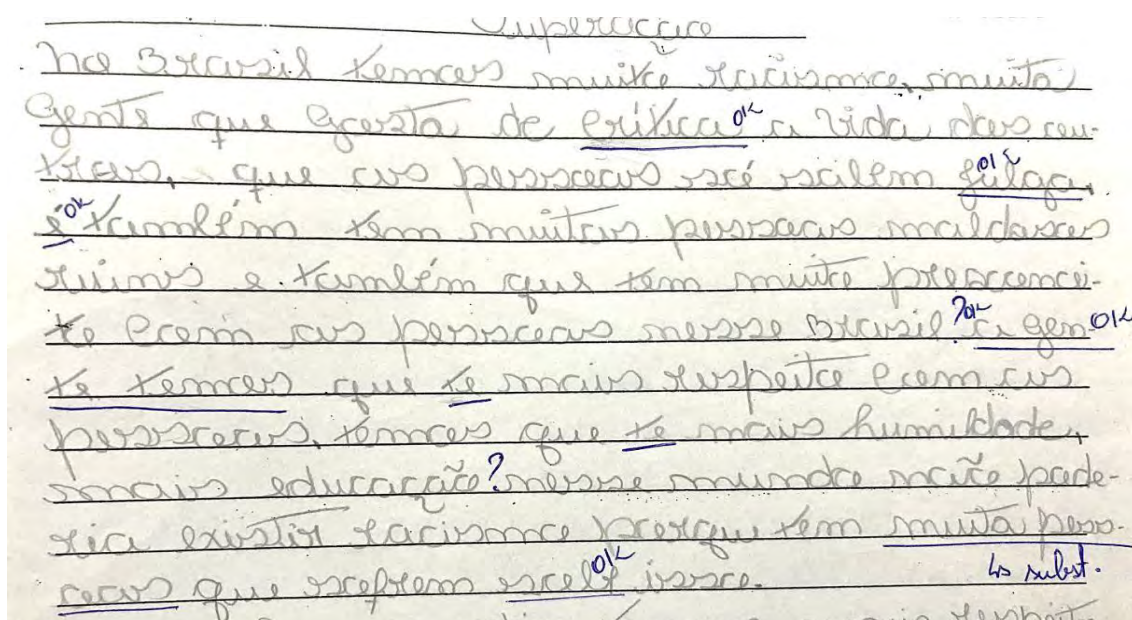 Superação
No Brasil temos muito racismo, muita
Gente que Gosta de crítica OK a vida dos ou-
tros, que as pessoas só sabem julga, OK
é OK também tem muitas pessoas maldosas
ruins e também que tem muito preoconcei-
to com as pessoas nesse Brasil ? OK a gen- OK
te temos que te mais respeito com as
pessoas, temos que te mais humildade,
mais educação ? nesse mundo não pode-
ria existir racismo porque tem muita pess-
oas que sofrem OK isso.
↳ subst.